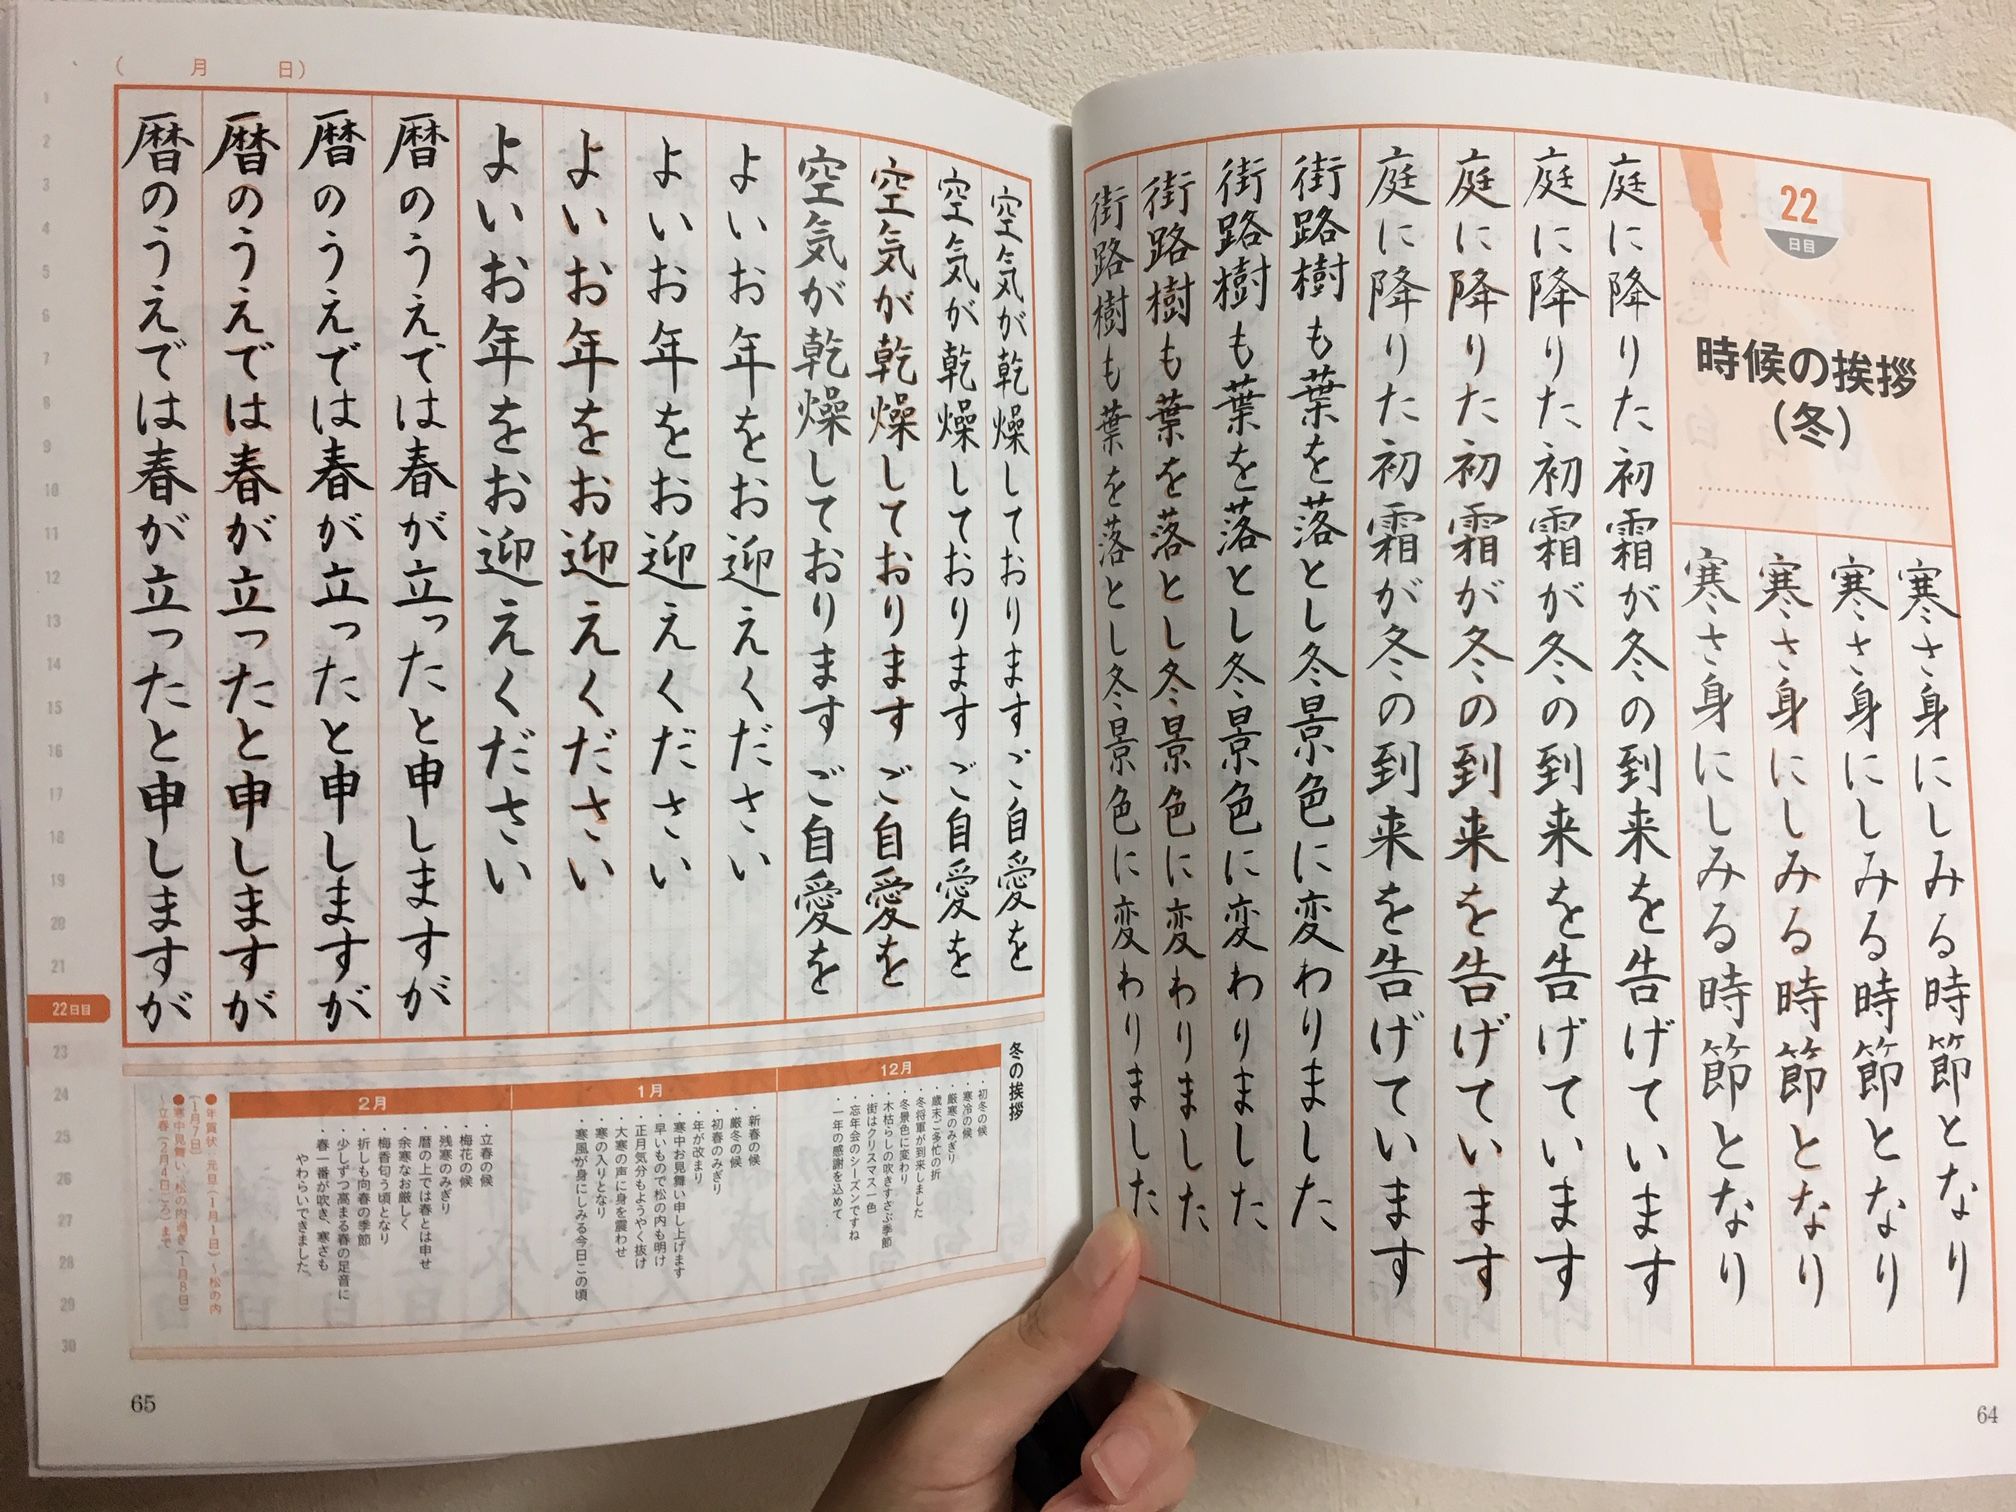 22
日目
時候の挨拶
（冬）
寒さ身にしみる時節となり
寒さ身にしみる時節となり
寒さ身にしみる時節となり
寒さ身にしみる時節となり
庭に降りた初霜が冬の到来を告げています
庭に降りた初霜が冬の到来を告げています
庭に降りた初霜が冬の到来を告げています
庭に降りた初霜が冬の到来を告げています
街路樹も葉を落とし冬景色に変わりました
街路樹も葉を落とし冬景色に変わりました
街路樹も葉を落とし冬景色に変わりました
街路樹も葉を落とし冬景色に変わりました
64
（　月　日）
空気が乾燥しております ご自愛を
空気が乾燥しております ご自愛を
空気が乾燥しております ご自愛を
空気が乾燥しております ご自愛を
よいお年をお迎えください
よいお年をお迎えください
よいお年をお迎えください
よいお年をお迎えください
暦のうえでは春が立ったと申しますが
暦のうえでは春が立ったと申しますが
暦のうえでは春が立ったと申しますが
暦のうえでは春が立ったと申しますが
冬の挨拶
12月
・初冬の候
・寒冷の候
・厳寒のみぎり
・歳末ご多忙の折
・冬将軍が到来しました
・冬景色に変わり
・木枯らしの吹きすさぶ季節
・街はクリスマス一色
・忘年会のシーズンですね
・一年の感謝を込めて
1月
・新春の候
・厳冬の候
・初春のみぎり
・年が改まり
・寒中お見舞い申し上げます
・早いもので松の内も明け
・正月気分もようやく抜け
・大寒の声に身を震わせ
・寒の入りとなり
・寒風が身にしみる今日この頃
2月
・立春の候
・梅花の候
・残寒のみぎり
・暦の上では春とは申せ
・余寒なお厳しく
・梅香匂う頃となり
・折しも向春の季節
・少しずつ高まる春の足音に
・春一番が吹き、寒さも
やわらいできました。
●年賀状・元旦（1月1日）～松の内
（1月7日）
●寒中見舞い・松の内過ぎ（1月8日）
～立春（2月4日ごろ）まで
1
2
3
4
5
6
7
8
9
10
11
12
13
14
15
16
17
18
19
20
21
22日目
23
24
25
26
27
28
29
30
65